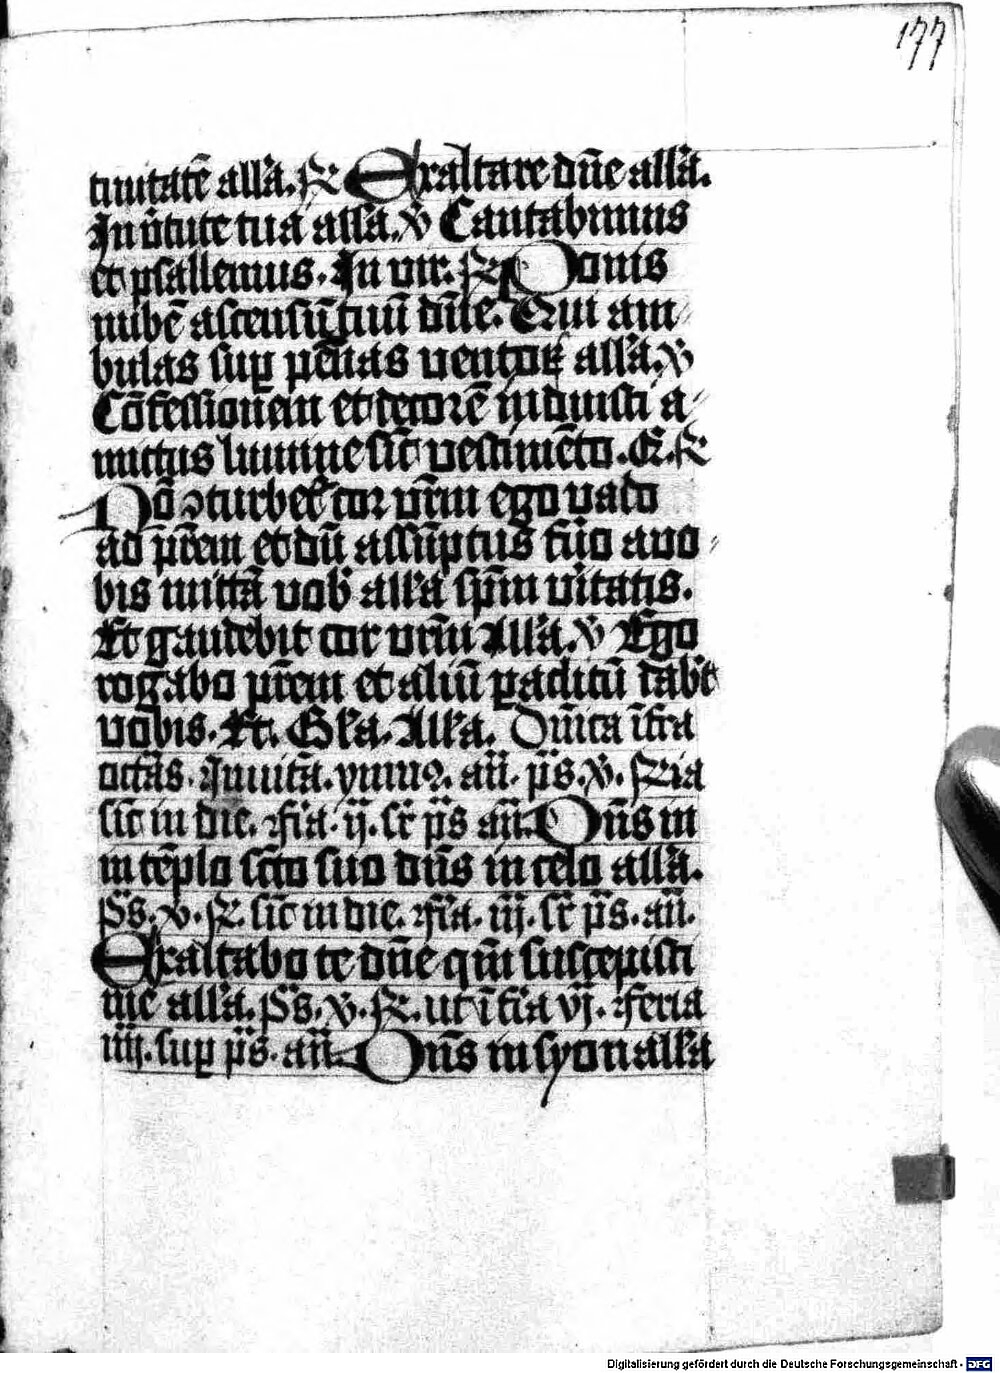 177
tiuitatē all'a. ꝶ Exaltare dn̄e all'a.
In v̄tute tua all'a. ꝟ Cantabimus
et psallemus. In uir. ꝶ Ponis
nubē ascensū tuū dn̄e. Qui am⸗
bulas suꝑ pēnas uentoꝝ all'a. ꝟ
Cōfessionem et decorē induisti a⸗
mictus lumine sic̄ uestimēto. Q. ꝶ
Nō ꝯturbet̄ cor vr̄m ego uado
ad pr̄em et dū assūptus fūo a uo⸗
bis mittā uob' all'a sp̄m v̄itatis.
Et gaudebit cor vr̄m All'a. ꝟ Ego
rogabo pr̄em et aliū ꝑaclitū dab't
uobis. Et. Gl'a. All'a. Dn̄ica īfra
octās. Inuitā. ymnꝯ. an̄. ps̄. ꝟ. ꝶia
sic̄ in die. fīa. ij. sr̄ ps̄ an̄. Dn̄s in
in tēplo sc̄to suo dn̄s in celo all'a.
Ps̄. ꝟ. ꝶ. sic̄ in die. fīa. iij. sr̄ ps̄. an̄.
Exaltabo te dn̄e qm̄ suscepisti
me all'a. Ps̄. ꝟ. ꝶ. ut ī fīa vj. feria
iiij. suꝑ ps̄. an̄. Dn̄s in syon all'a
Digitalisierung gefördert durch die Deutsche Forschungsgemeinschaft - DFG